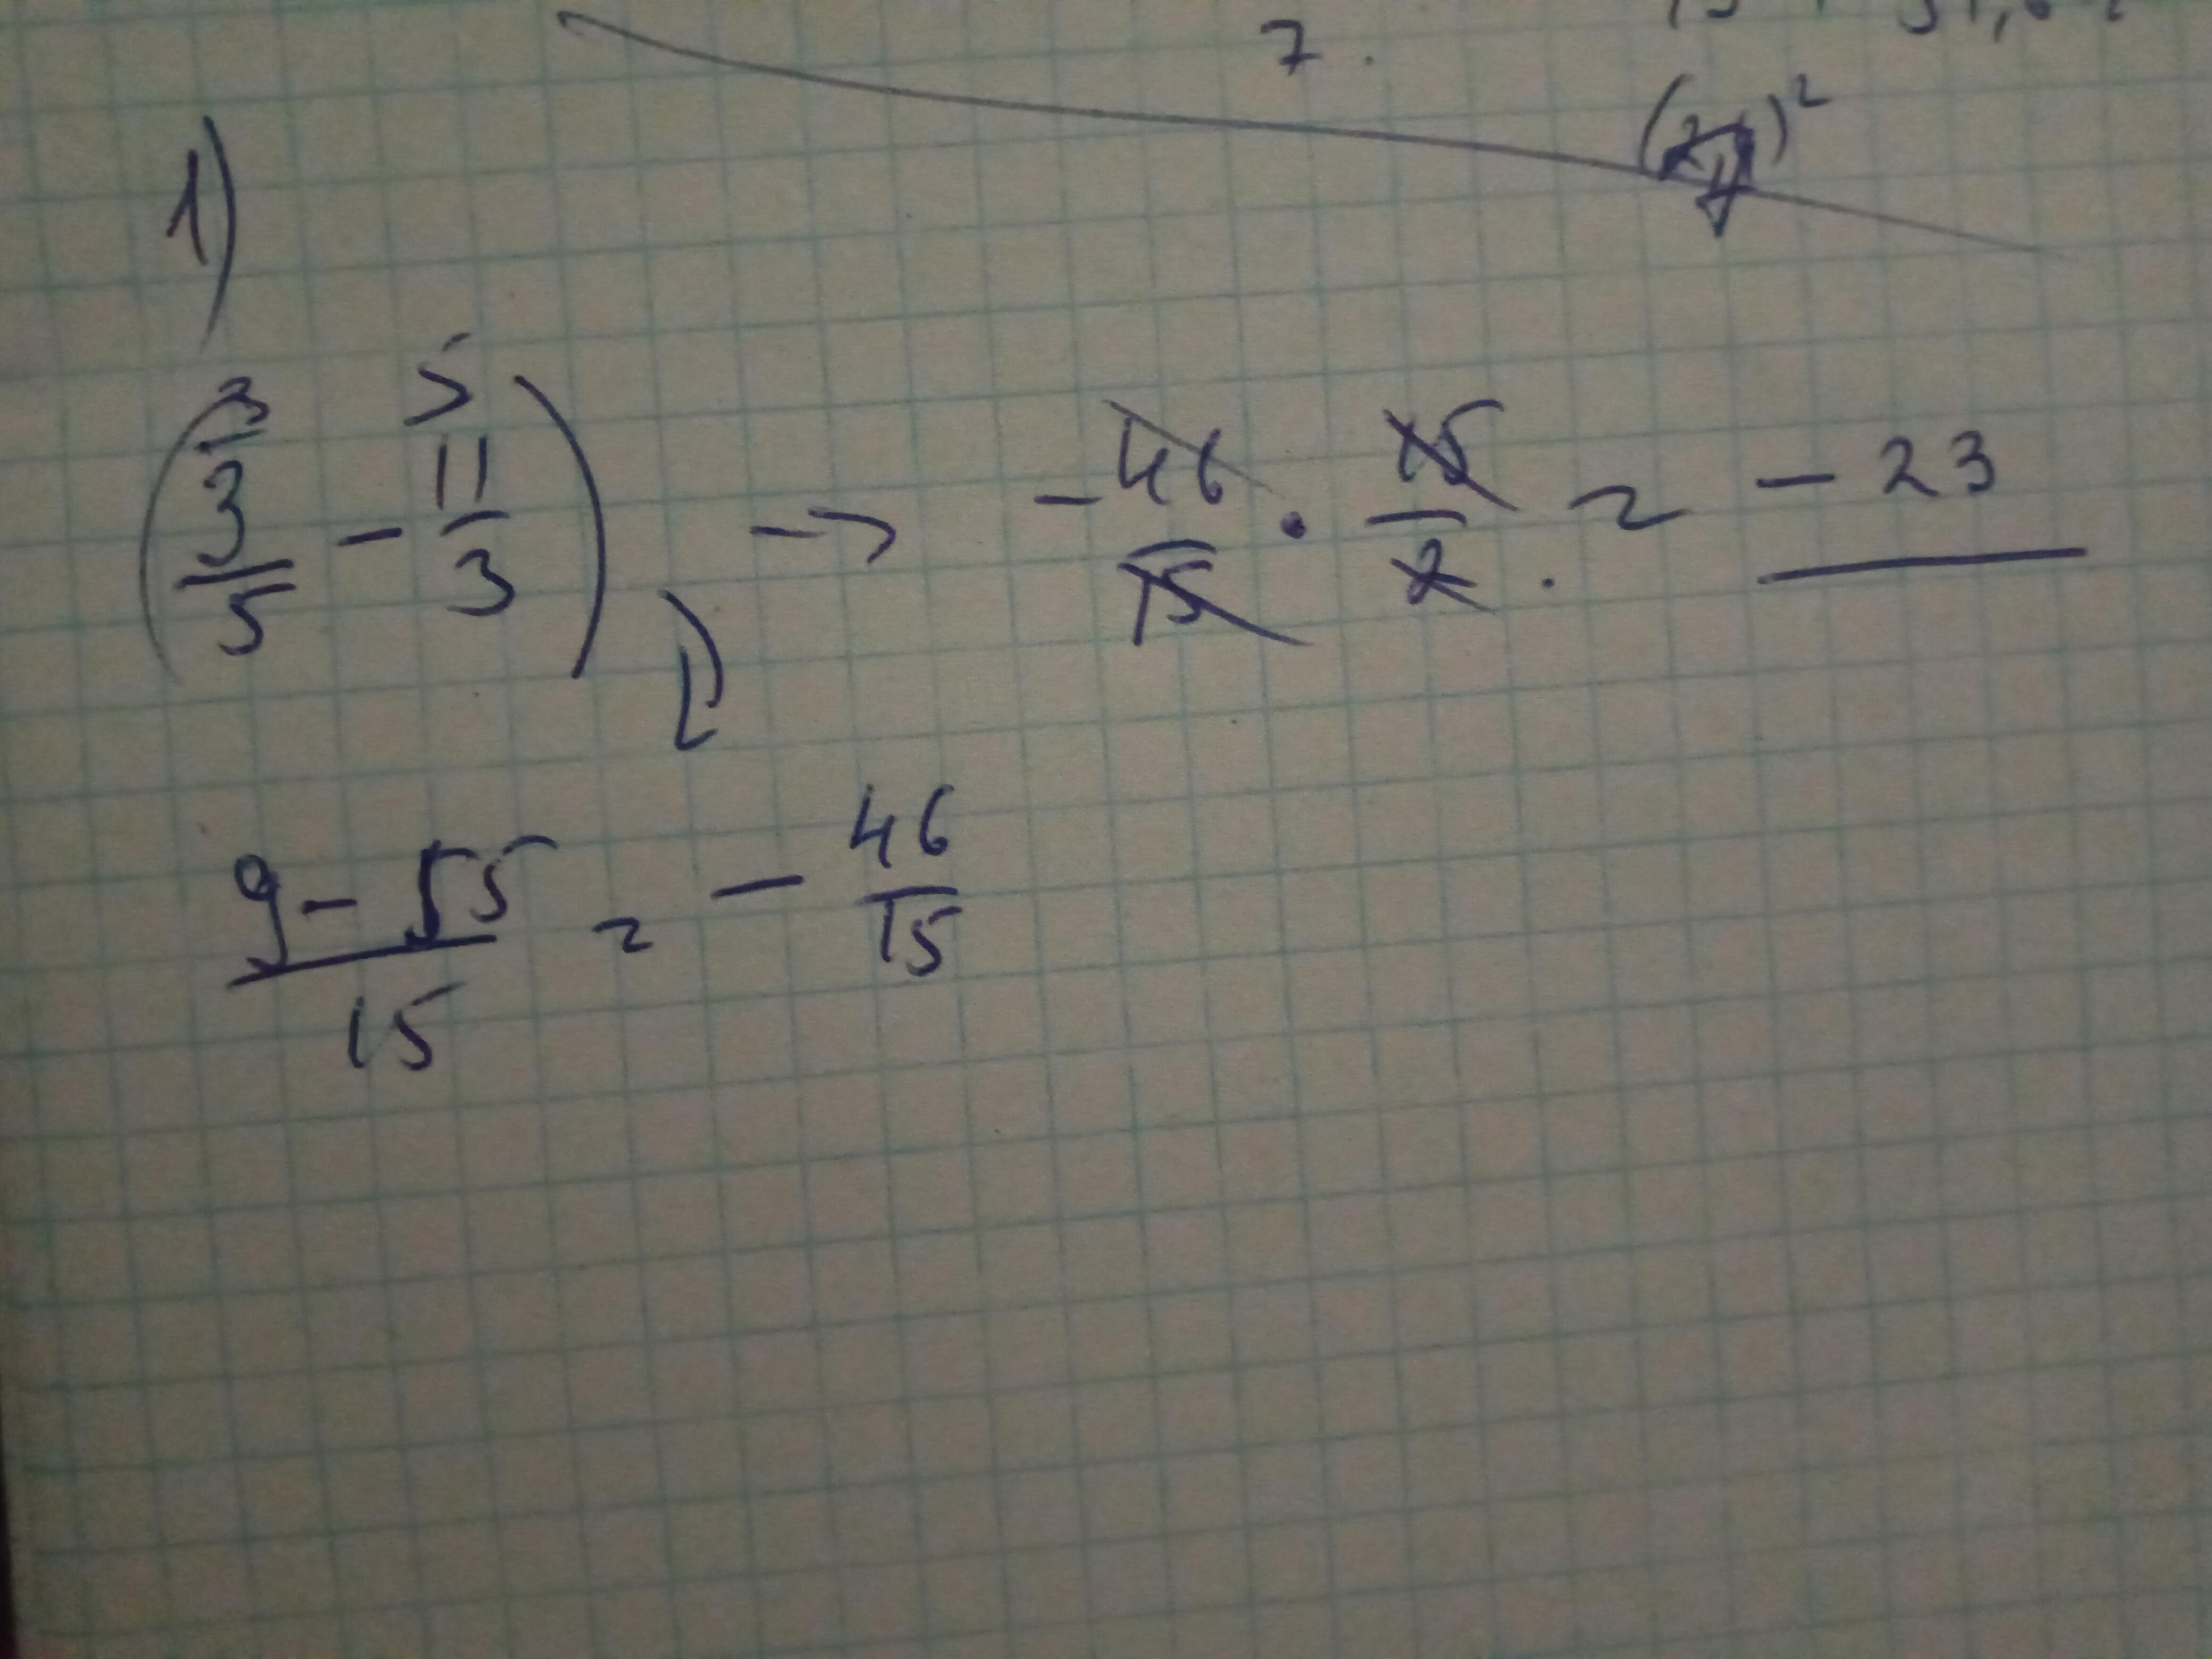 7.
( )²
1)
(3/5 - 11/3) -> - 46/15 · 15/2 = - 23
3 5
9 - 55 / 15 = - 46/15